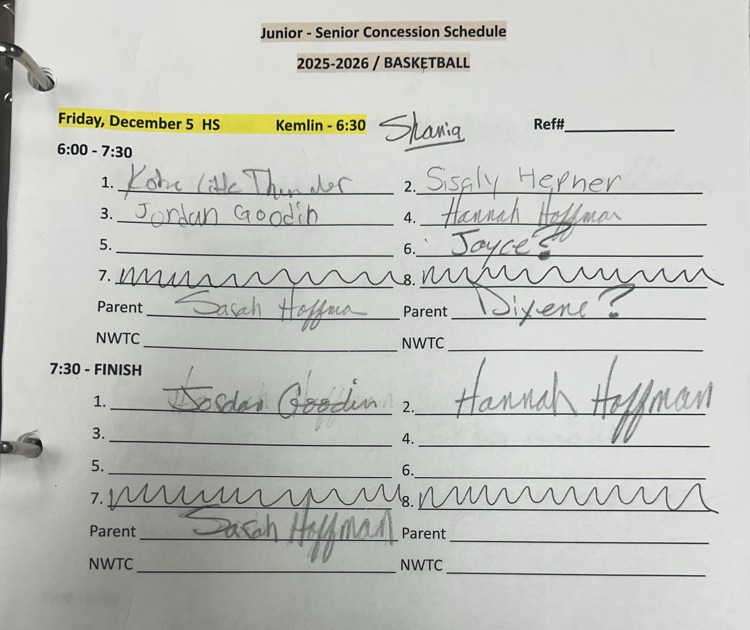 Junior - Senior Concession Schedule
2025-2026 / BASKETBALL
Friday, December 5 HS Kemlin - 6:30 Shania Ref#
6:00 - 7:30
1. Kobe Little Thunder 2. Sissly Hepner
3. Jordan Goodin 4. Hannah Hoffman
5. 6. Joyce?
7. 8.
Parent Sarah Hoffman Parent Dixene?
NWTC NWTC
7:30 - FINISH
1. Jordan Goodin 2. Hannah Hoffman
3. 4.
5. 6.
7. 8.
Parent Sarah Hoffman Parent
NWTC NWTC